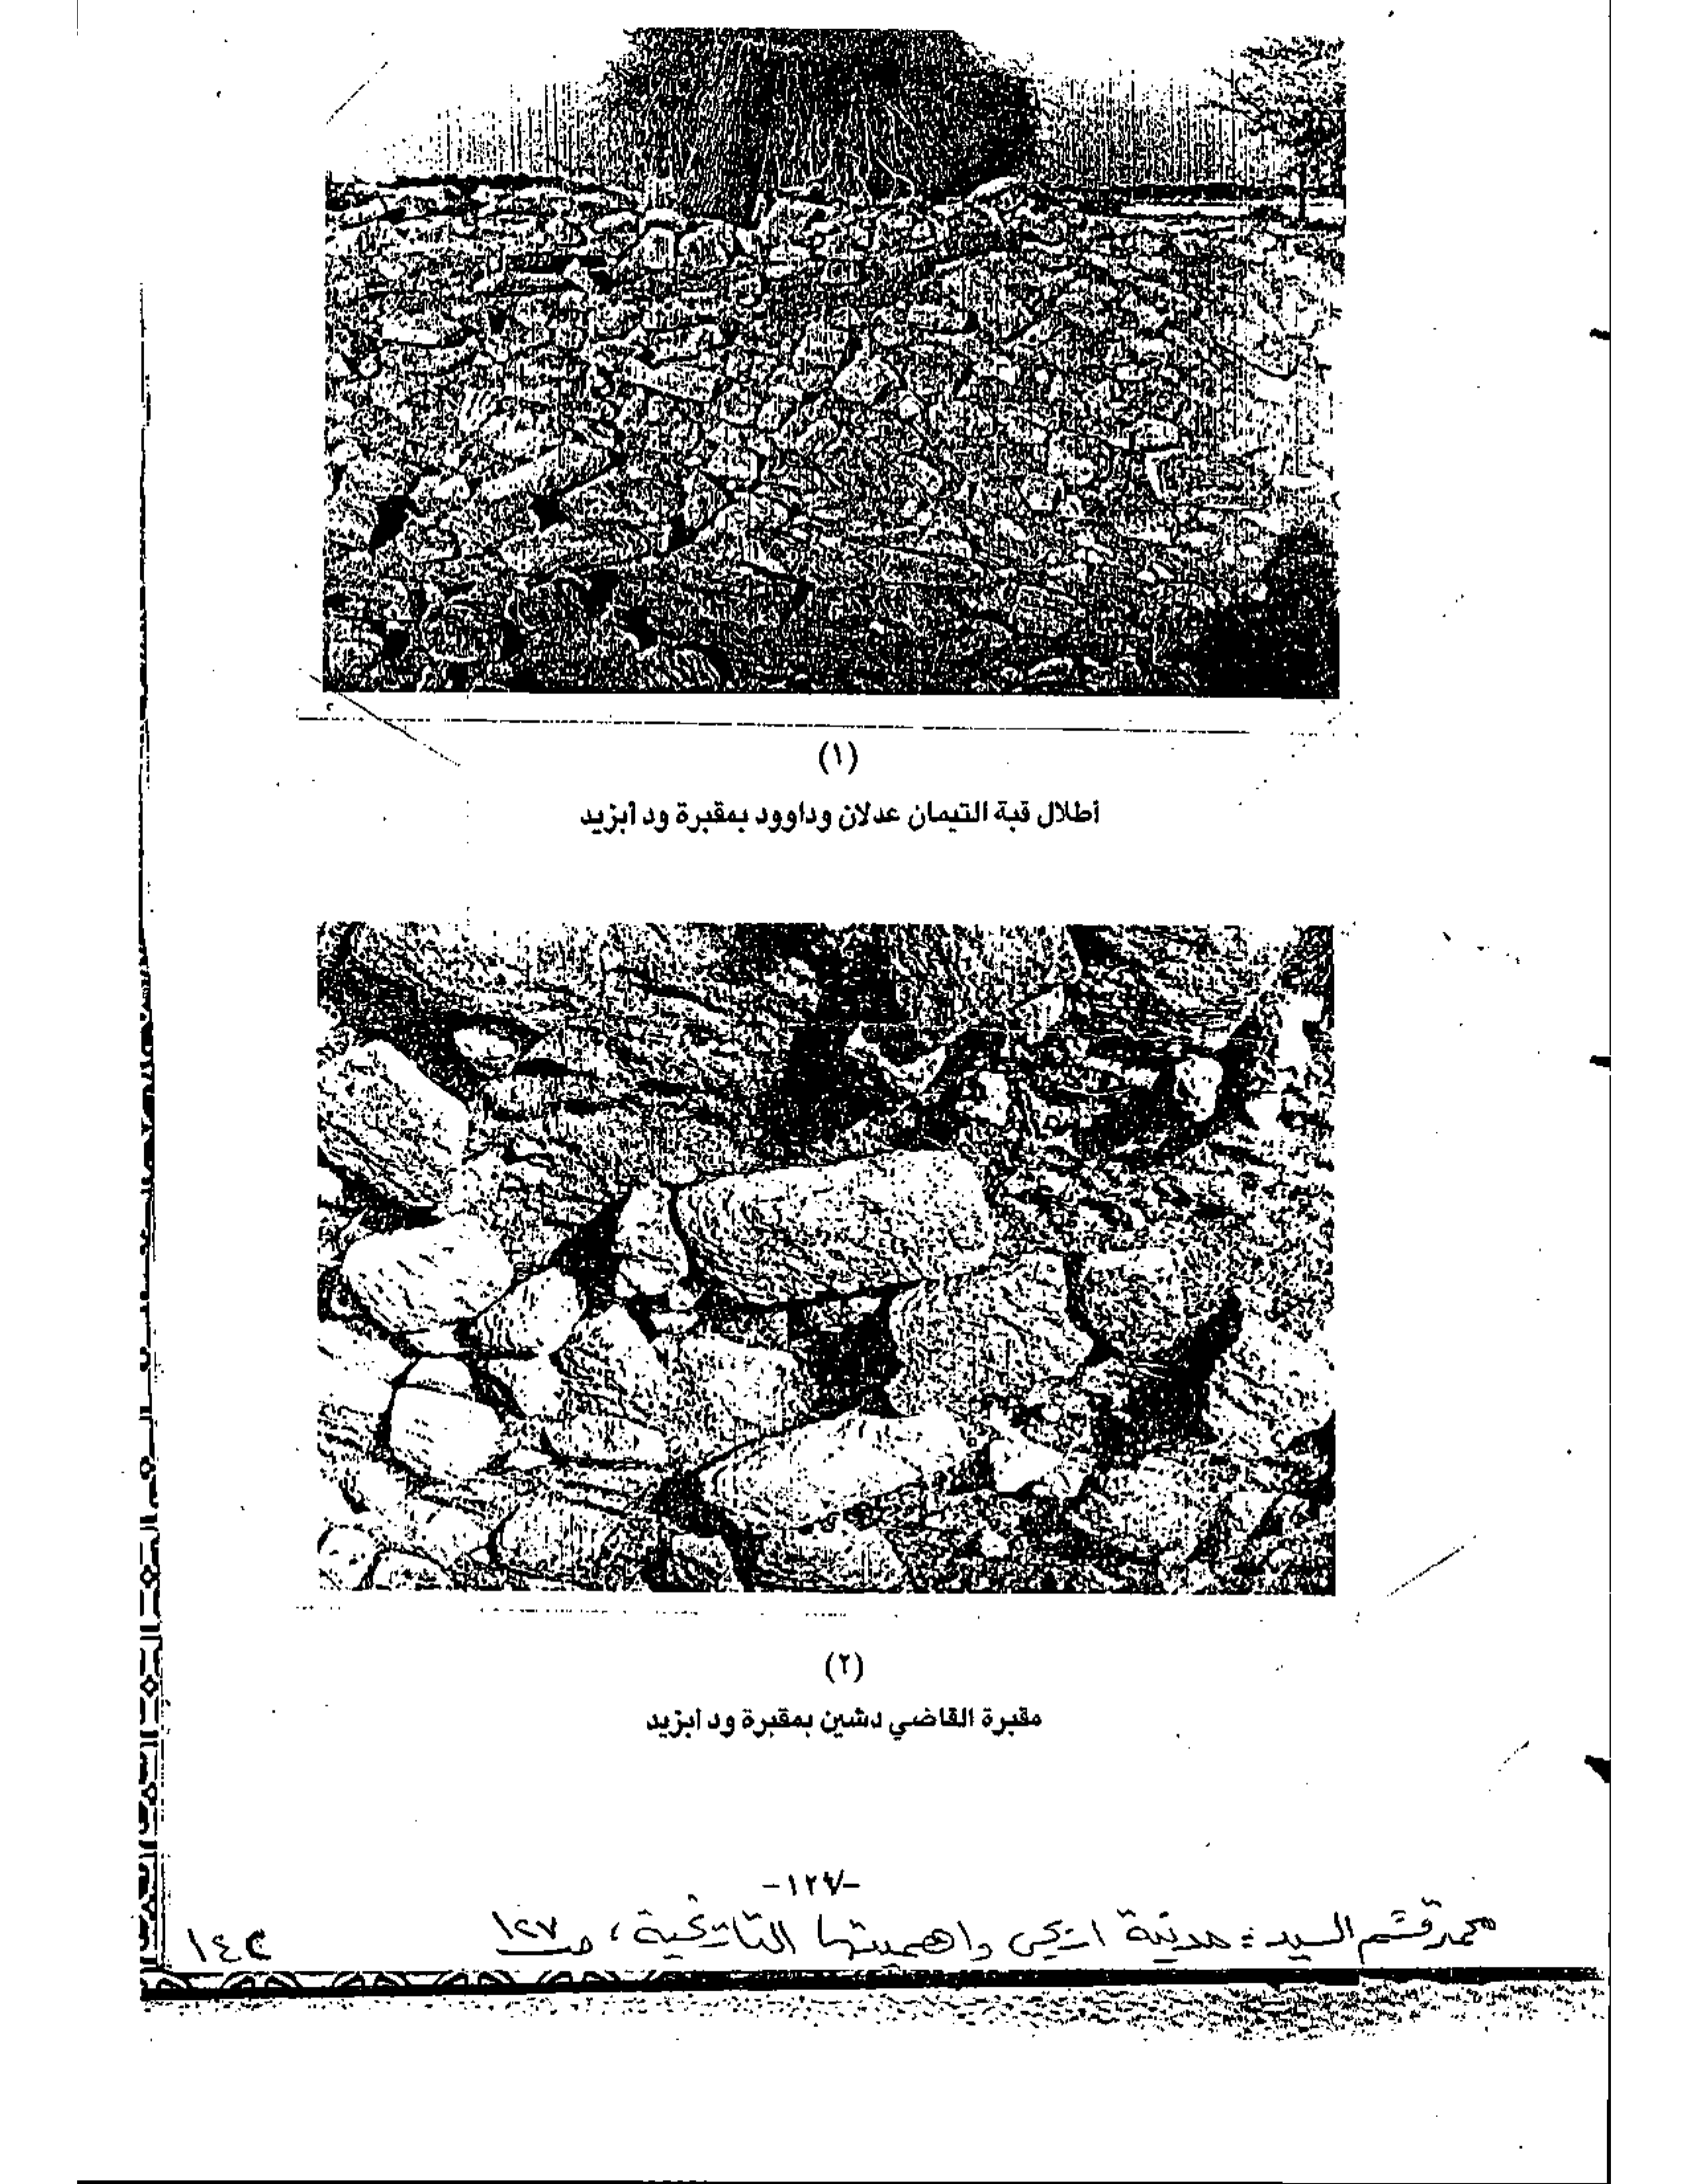 (١)
أطلال قبة التيمان عدلان وداوود بمقبرة ود أبزيد
(٢)
مقبرة القاضي دشين بمقبرة ود أبزيد
-١٢٧-
محمد قسم السيد: مدينة اربجي واهميتها التاريخية، ص ١٢٧
١٤٢